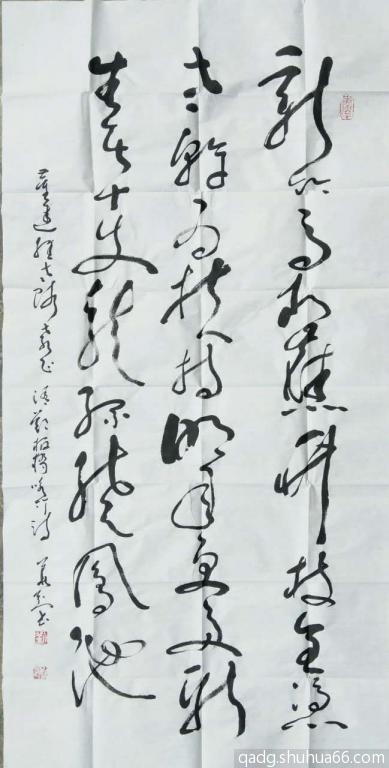 新竹高於舊竹枝全憑
老幹為扶持明年更有新
生者十丈龍孫繞鳳池
老師 清鄭板橋咏竹詩 書
qadg.shuhua66.com